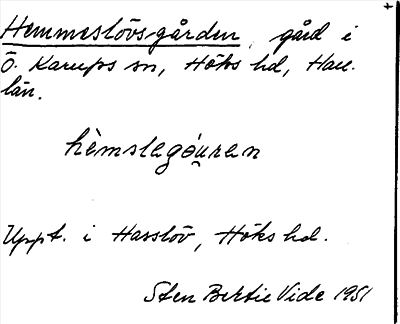 Hemmeslövsgården, gård i
Ö. Karups sn, Höks hd, Hall.
län.
hèmslegǫ́u̯ren
Uppt. i Hasslöv, Höks hd.
Sten Bertil Vide 1951